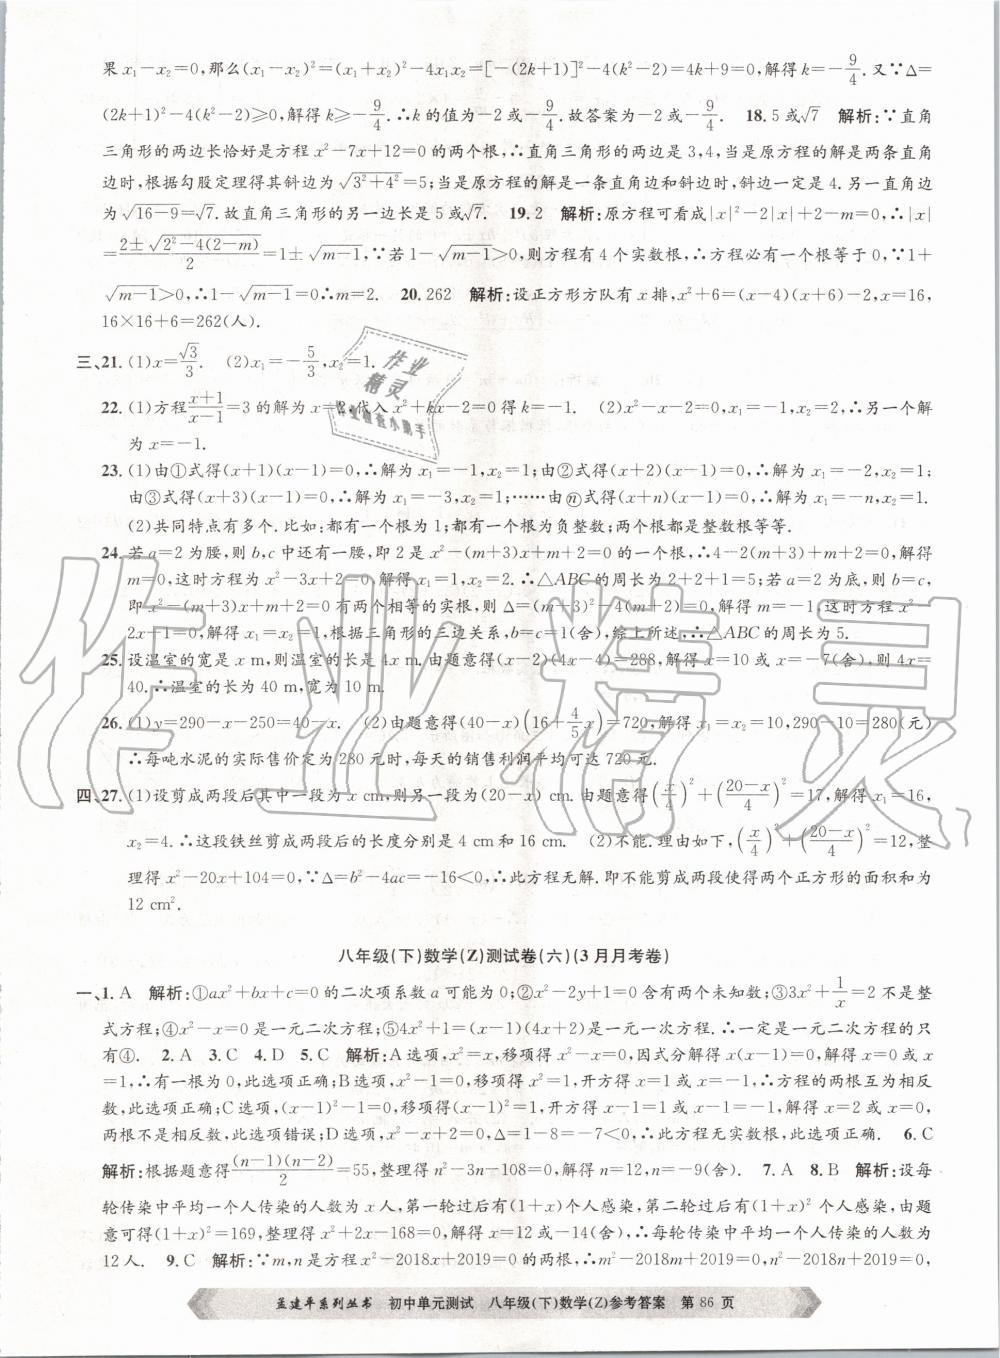 果 x₁－x₂＝0,那么(x₁－x₂)²＝(x₁＋x₂)²－4x₁x₂＝[－(2k＋1)]²－4(k²－2)＝4k＋9＝0,解得 k＝－9/4.又∵Δ＝
(2k＋1)²－4(k²－2)≥0,解得 k≥－9/4.∴k的值为－2或－9/4.故答案为－2或－9/4. 18.5或√7 解析:∵直角
三角形的两边长恰好是方程 x²－7x＋12＝0 的两个根,∴直角三角形的两边是 3,4,当是原方程的解是两条直角
边时,根据勾股定理得其斜边为√(3²＋4²)＝5;当是原方程的解是一条直角边和斜边时,斜边一定是 4.另一直角边
为√(16－9)＝√7.故直角三角形的另一边长是5或√7. 19.2 解析:原方程可看成|x|²－2|x|＋2－m＝0,∴|x|
＝(2±√(2²－4(2－m)))/2＝1±√(m－1),∵若 1－√(m－1)＞0,则方程有 4 个实数根,∴方程必有一个根等于 0,∵1＋
√(m－1)＞0,∴1－√(m－1)＝0∴m＝2. 20.262 解析:设正方形方队有 x 排,x²＋6＝(x－4)(x＋6)－2,x＝16,
16×16＋6＝262(人).
三、21.(1)x＝√3/3. (2)x₁＝－5/3,x₂＝1.
22.(1)方程(x＋1)/(x－1)＝3 的解为 x＝2,代入 x²＋kx－2＝0得 k＝－1. (2)x²－x－2＝0,x₁＝－1,x₂＝2,∴另一个解
为 x＝－1.
23.(1)由①式得(x＋1)(x－1)＝0,∴解为 x₁＝－1,x₂＝1;由②式得(x＋2)(x－1)＝0,∴解为 x₁＝－2,x₂＝1;
由③式得(x＋3)(x－1)＝0,∴解为 x₁＝－3,x₂＝1;……由ⓝ式得(x＋n)(x－1)＝0,∴解为 x₁＝－n,x₂＝1.
(2)共同特点有多个.比如:都有一个根为1;都有一个根为负整数;两个根都是整数根等等.
24.若 a＝2 为腰,则 b,c 中还有一腰,即 2 是 x²－(m＋3)x＋m＋2＝0 的一个根,∴4－2(m＋3)＋m＋2＝0,解得
m＝0,这时方程为 x²－3x＋2＝0,解得 x₁＝1,x₂＝2.∴△ABC的周长为 2＋2＋1＝5;若 a＝2 为底,则 b＝c,
即 x²－(m＋3)x＋m＋2＝0 有两个相等的实根,则 Δ＝(m＋3)²－4(m＋2)＝0,解得 m＝－1,这时方程 x²－
2x＋1＝0,解得 x₁＝x₂＝1,根据三角形的三边关系,b＝c＝1(舍),综上所述,∴△ABC的周长为 5.
25.设温室的宽是 x m,则温室的长是 4x m.由题意得(x－2)(4x－4)＝288,解得 x＝10 或 x＝－7(舍),则 4x＝
40.∴温室的长为 40 m,宽为 10 m.
26.(1)y＝290－x－250＝40－x. (2)由题意得(40－x)(16＋4/5x)＝720,解得 x₁＝x₂＝10,290－10＝280(元)
∴每吨水泥的实际售价定为 280 元时,每天的销售利润平均可达 720 元.
四、27.(1)设剪成两段后其中一段为 x cm,则另一段为(20－x) cm.由题意得(x/4)²＋((20－x)/4)²＝17,解得 x₁＝16,
x₂＝4.∴这段铁丝剪成两段后的长度分别是 4 cm和 16 cm. (2)不能.理由如下,(x/4)²＋((20－x)/4)²＝12,整
理得 x²－20x＋104＝0,∵Δ＝b²－4ac＝－16＜0,∴此方程无解.即不能剪成两段使得两个正方形的面积和为
12 cm².
八年级(下)数学(Z)测试卷(六)(3月月考卷)
一、1.A 解析:①ax²＋bx＋c＝0的二次项系数a可能为 0;②x²－2y＋1＝0含有两个未知数;③3x²＋1/x＝2 不是整
式方程;④x²－x＝0 是一元二次方程;⑤4x²＋1＝(4x＋2)(x＋2)为一元一次方程.∴一定是一元二次方程的只
有④. 2.A 3.C 4.D 5.C 解析:A选项,x²＝x,移项得 x²－x＝0,因式分解得 x(x－1)＝0,解得 x＝0或 x
＝1,∴有一根为 0,此选项正确;B选项,x²－1＝0,移项得 x²＝1,直接开方得 x＝1或 x＝－1,∴方程的两根互为相反
数,此选项正确;C选项,(x－1)²－1＝0,移项得(x－1)²＝1,开方得 x－1＝1或 x－1＝－1,解得 x＝2或 x＝0,
两根不是互为相反数,此选项错误;D 选项,x²－x＋2＝0,Δ＝1－8＝－7＜0,∴此方程无实数根,此选项正确. 6.C
解析:根据题意得(n－1)(n－2)/2＝55,整理得 n²－3n－108＝0,解得 n₁＝12,n₂＝－9(舍). 7.A 8.B 解析:设每
轮传染中平均一个人传染的人数为 x 人,第一轮过后有(1＋x)个人感染,第二轮过后有(1＋x)²个人感染,由题
意可得(1＋x)²＝169,整理得 x²＋2x－168＝0,解得 x＝12或 x＝－14(舍).∴每轮传染中平均一个人传染的人数为
12人. 9.C 解析:∵m,n是方程 x²－2018x＋2019＝0的两根,∴m²－2018m＋2019＝0,n²－2018n＋2019＝0,
孟建平系列丛书 初中单元测试 八年级(下)数学(Z)参考答案 第 86 页
作业精灵
作业
精灵
作业检查小助手